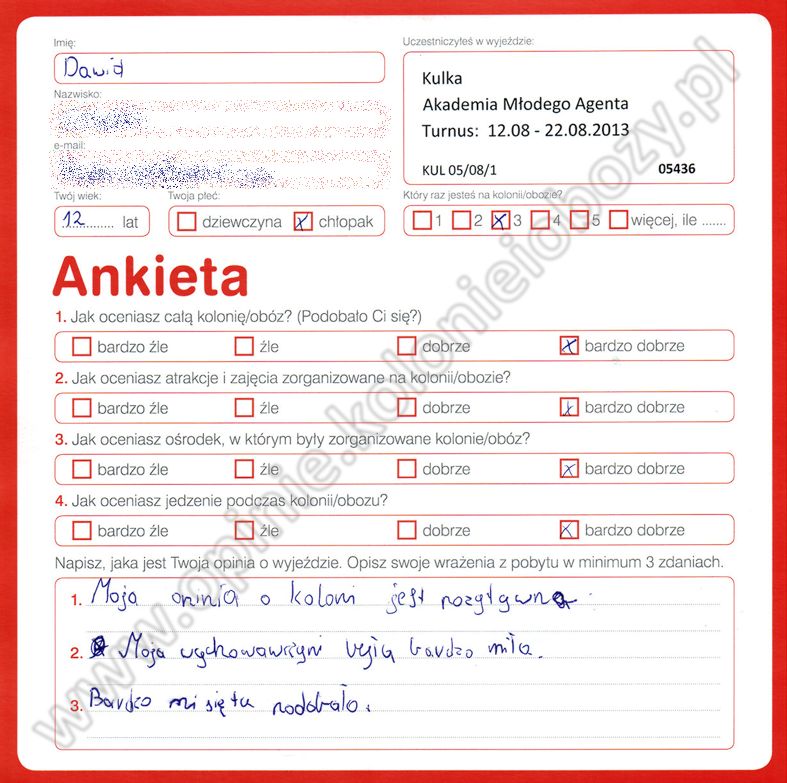 Imię:
Dawid
Uczestniczyłeś w wyjeździe:
Kulka
Akademia Młodego Agenta
Turnus: 12.08 - 22.08.2013
KUL 05/08/1 05436
Nazwisko:
e-mail:
Twój wiek:
12 lat
Twoja płeć:
dziewczyna x chłopak
Który raz jesteś na kolonii/obozie?
1 2 x 3 4 5 więcej, ile .......
Ankieta
1. Jak oceniasz całą kolonię/obóz? (Podobało Ci się?)
bardzo źle źle dobrze x bardzo dobrze
2. Jak oceniasz atrakcje i zajęcia zorganizowane na kolonii/obozie?
bardzo źle źle dobrze x bardzo dobrze
3. Jak oceniasz ośrodek, w którym były zorganizowane kolonie/obóz?
bardzo źle źle dobrze x bardzo dobrze
4. Jak oceniasz jedzenie podczas kolonii/obozu?
bardzo źle źle dobrze x bardzo dobrze
Napisz, jaka jest Twoja opinia o wyjeździe. Opisz swoje wrażenia z pobytu w minimum 3 zdaniach.
1. Moja opinia o koloni jest pozytywna.
2. Moja wychowawczyni była bardzo miła.
3. Bardzo mi się tu podobało.
www.opinie.kolonieiobozy.pl